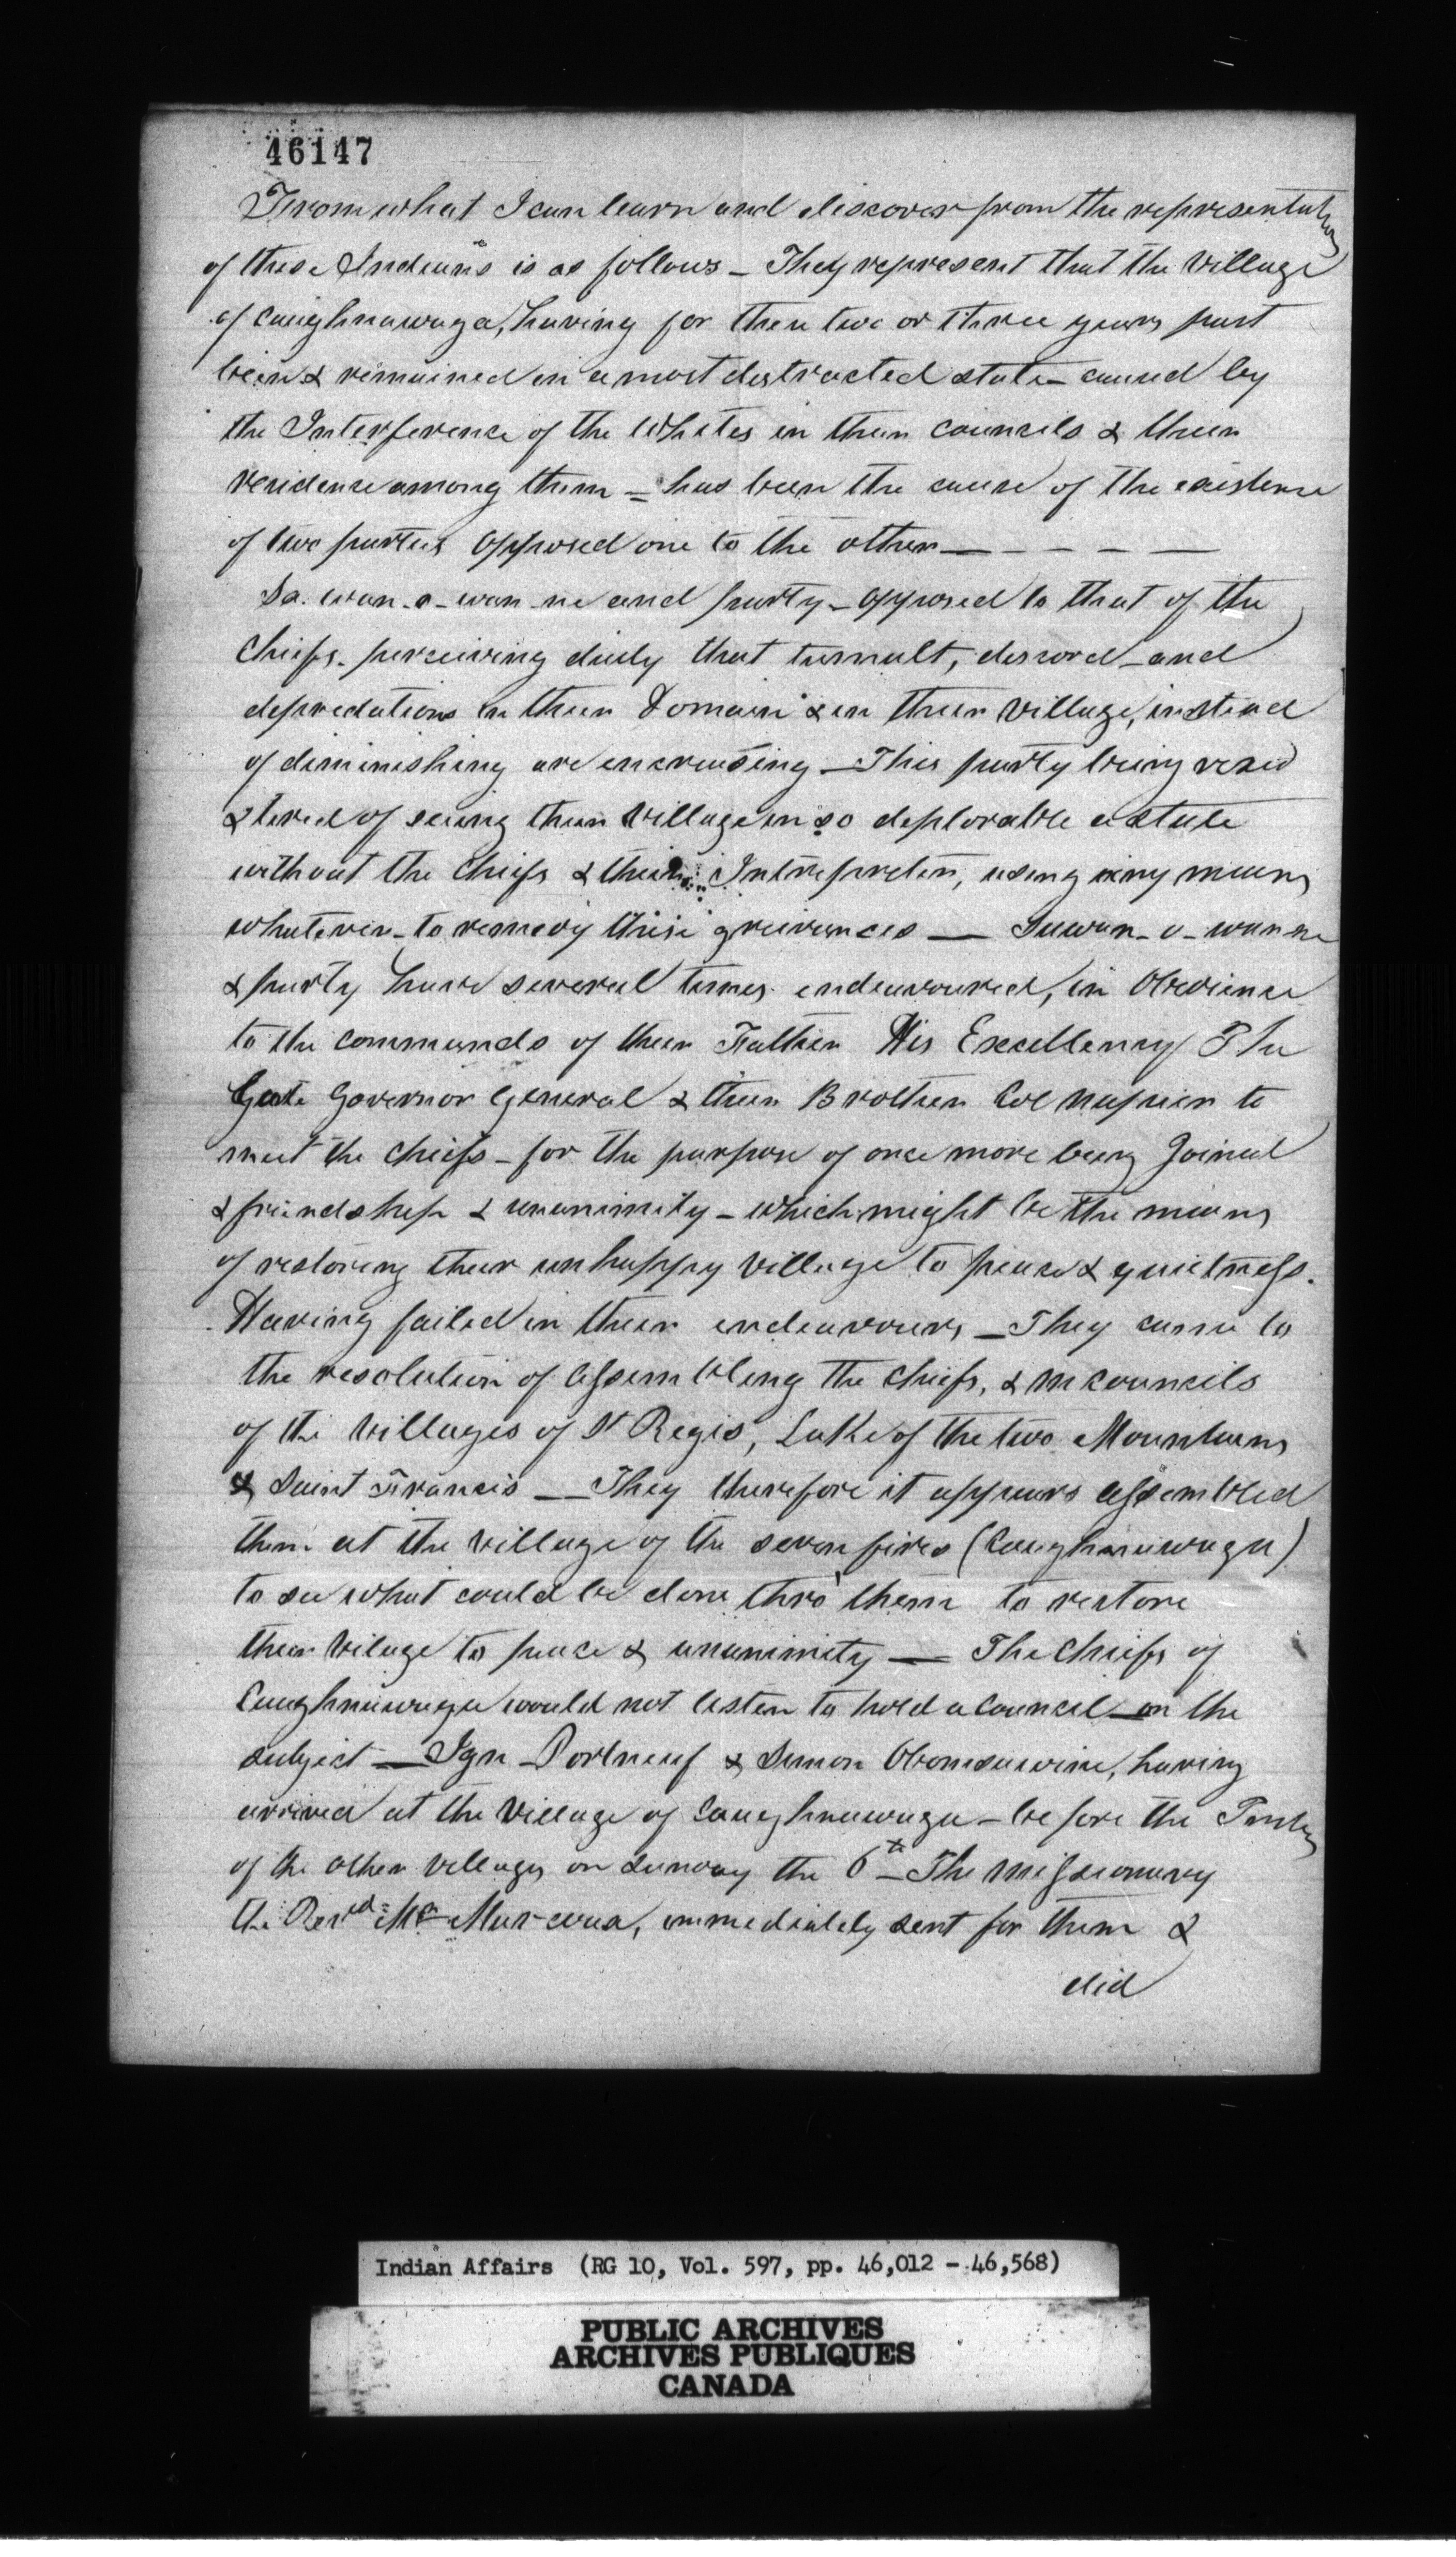 46147
From what I can learn and discover from the representation
of these Indians is as follows — They represent that the Village
of Caughnawaga, having for their two or three years past
been & remained in a most distracted state — caused by
the Interference of the Whites in their councils & their
residence among them — has been the cause of the existence
of two parties opposed one to the other — — — — —
Sa. wan-a-wan-ne and party — opposed to that of the
Chiefs. perceiving daily that tumult, discord — and
depredations in their Domain & in their Village, instead
of diminishing are encreasing — This party being vexed
& tired of seeing their Village in so deplorable a state
without the Chiefs & their Intrepreter, using any means
whatever — to remedy these grievances — Sawan-a-wanne
& party have several times endeavoured, in Obedience
to the commands of their Father His Excellency The
late Governor General & their Brother Col Napier to
meet the chiefs — for the purpose of once more being Joined
& friendship & unanimity — which might be the means
of restoring their unhappy village to peace & quietness.
Having failed in their endeavours — They came to
the resolution of Assembling the Chiefs, & in councils
of the Villages of St Regis, Lake of the two Mountains
& Saint Francis — They therefore it appears assembled
them at the village of the seven fires (Caughnawaga)
to see what could be done thro' them to restore
their Vilage to peace & unanimity — The Chiefs of
Caughnawaga would not listen to hold a Council on the
subject — Ign Portneuf & Simon Obomsawine, having
arrived at the Village of Caughnawaga — before the
of the other Villages on Sunday the 6th — The missionary
the Revd Mr Marcoux, immediately sent for them &
did
Indian Affairs (RG 10, Vol. 597, pp. 46,012 - 46,568)
PUBLIC ARCHIVES
ARCHIVES PUBLIQUES
CANADA